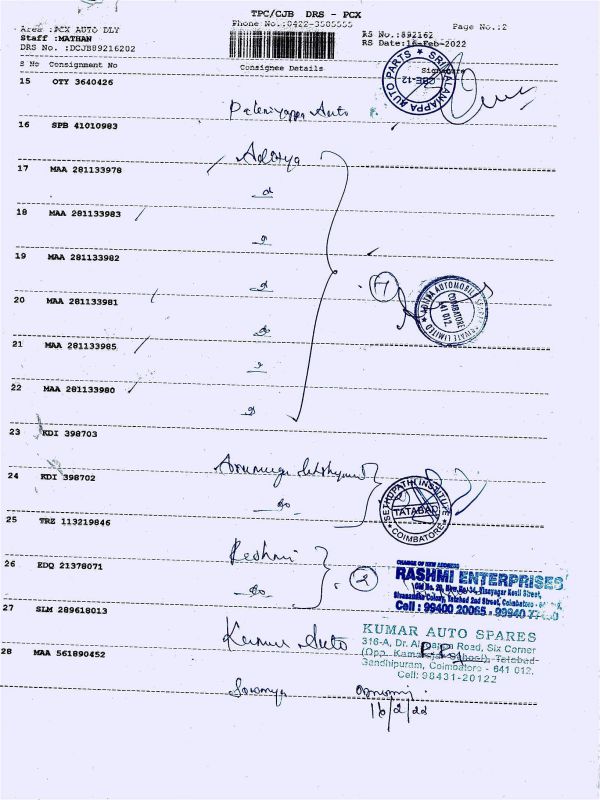 TPC/CJB DRS - PCX
Phone No.:0422-3505555
Page No.:2
Area :PCX AUTO DLY
Staff :MATHAN
DRS No. :DCJB89216202
RS No.:892162
RS Date:16-Feb-2022
S No Consignment No Consignee Details Signature
15 OTY 3640426
Palaniyappa Auto
SRI PALANIAPPA AUTO PARTS
CBE-12
16 SPB 41010983
Aditya
17 MAA 281133978
18 MAA 281133983
19 MAA 281133982
7
COIMBATORE
641 012
20 MAA 281133981
21 MAA 281133985
22 MAA 281133980
23 KDI 398703
Arumuga
24 KDI 398702
do
SETHUPATHI INSTITUTE
TATABAD
COIMBATORE
25 TRZ 113219846
Reshmi
26 EDQ 21378071
do
2
CHANGE OF NEW ADDRESS
RASHMI ENTERPRISES
Sivanandha Colony, Tatabad 2nd Street, Coimbatore -
Cell : 99400 20065 - 99940
27 SLM 289618013
Kumar Auto
KUMAR AUTO SPARES
316-A, Dr. Alagappa Road, Six Corner
(Opp. Kamarajar School), Tatabad
Gandhipuram, Coimbatore - 641 012.
Cell: 98431-20122
28 MAA 561890452
Sowmya
16/2/22